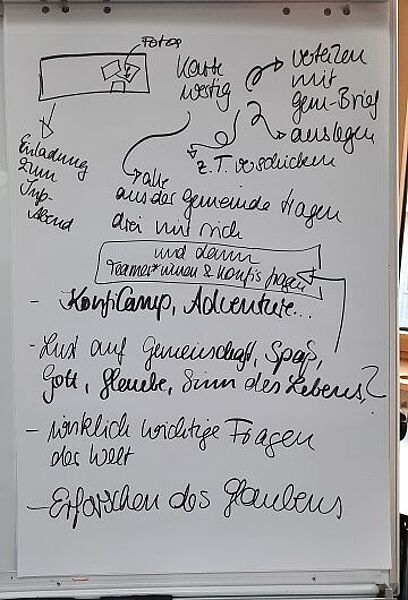 Fotos
Karte
wertig
verteilen
mit
Gem-Brief
auslegen
z.T. verschicken
Einladung
zum
Abend
alle
aus der Gemeinde fragen
die mit mich
und dann
Teamer*innen & Konfis fragen
- KonfiCamp, Adventure...
- Lust auf Gemeinschaft, Spaß,
Gott, Glaube, Sinn des Lebens?
- wirklich wichtige Fragen
der Welt
- Erforschen des Glaubens